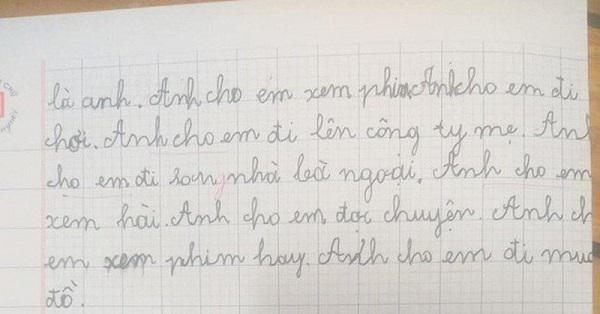 là anh. Anh cho em xem phim. Anh cho em đi
chơi. Anh cho em đi lên công ty mẹ. Anh
cho em đi sang nhà bà ngoại. Anh cho em
xem hài. Anh cho em đọc chuyện. Anh ch
em xem phim hay. Anh cho em đi mua
đồ.